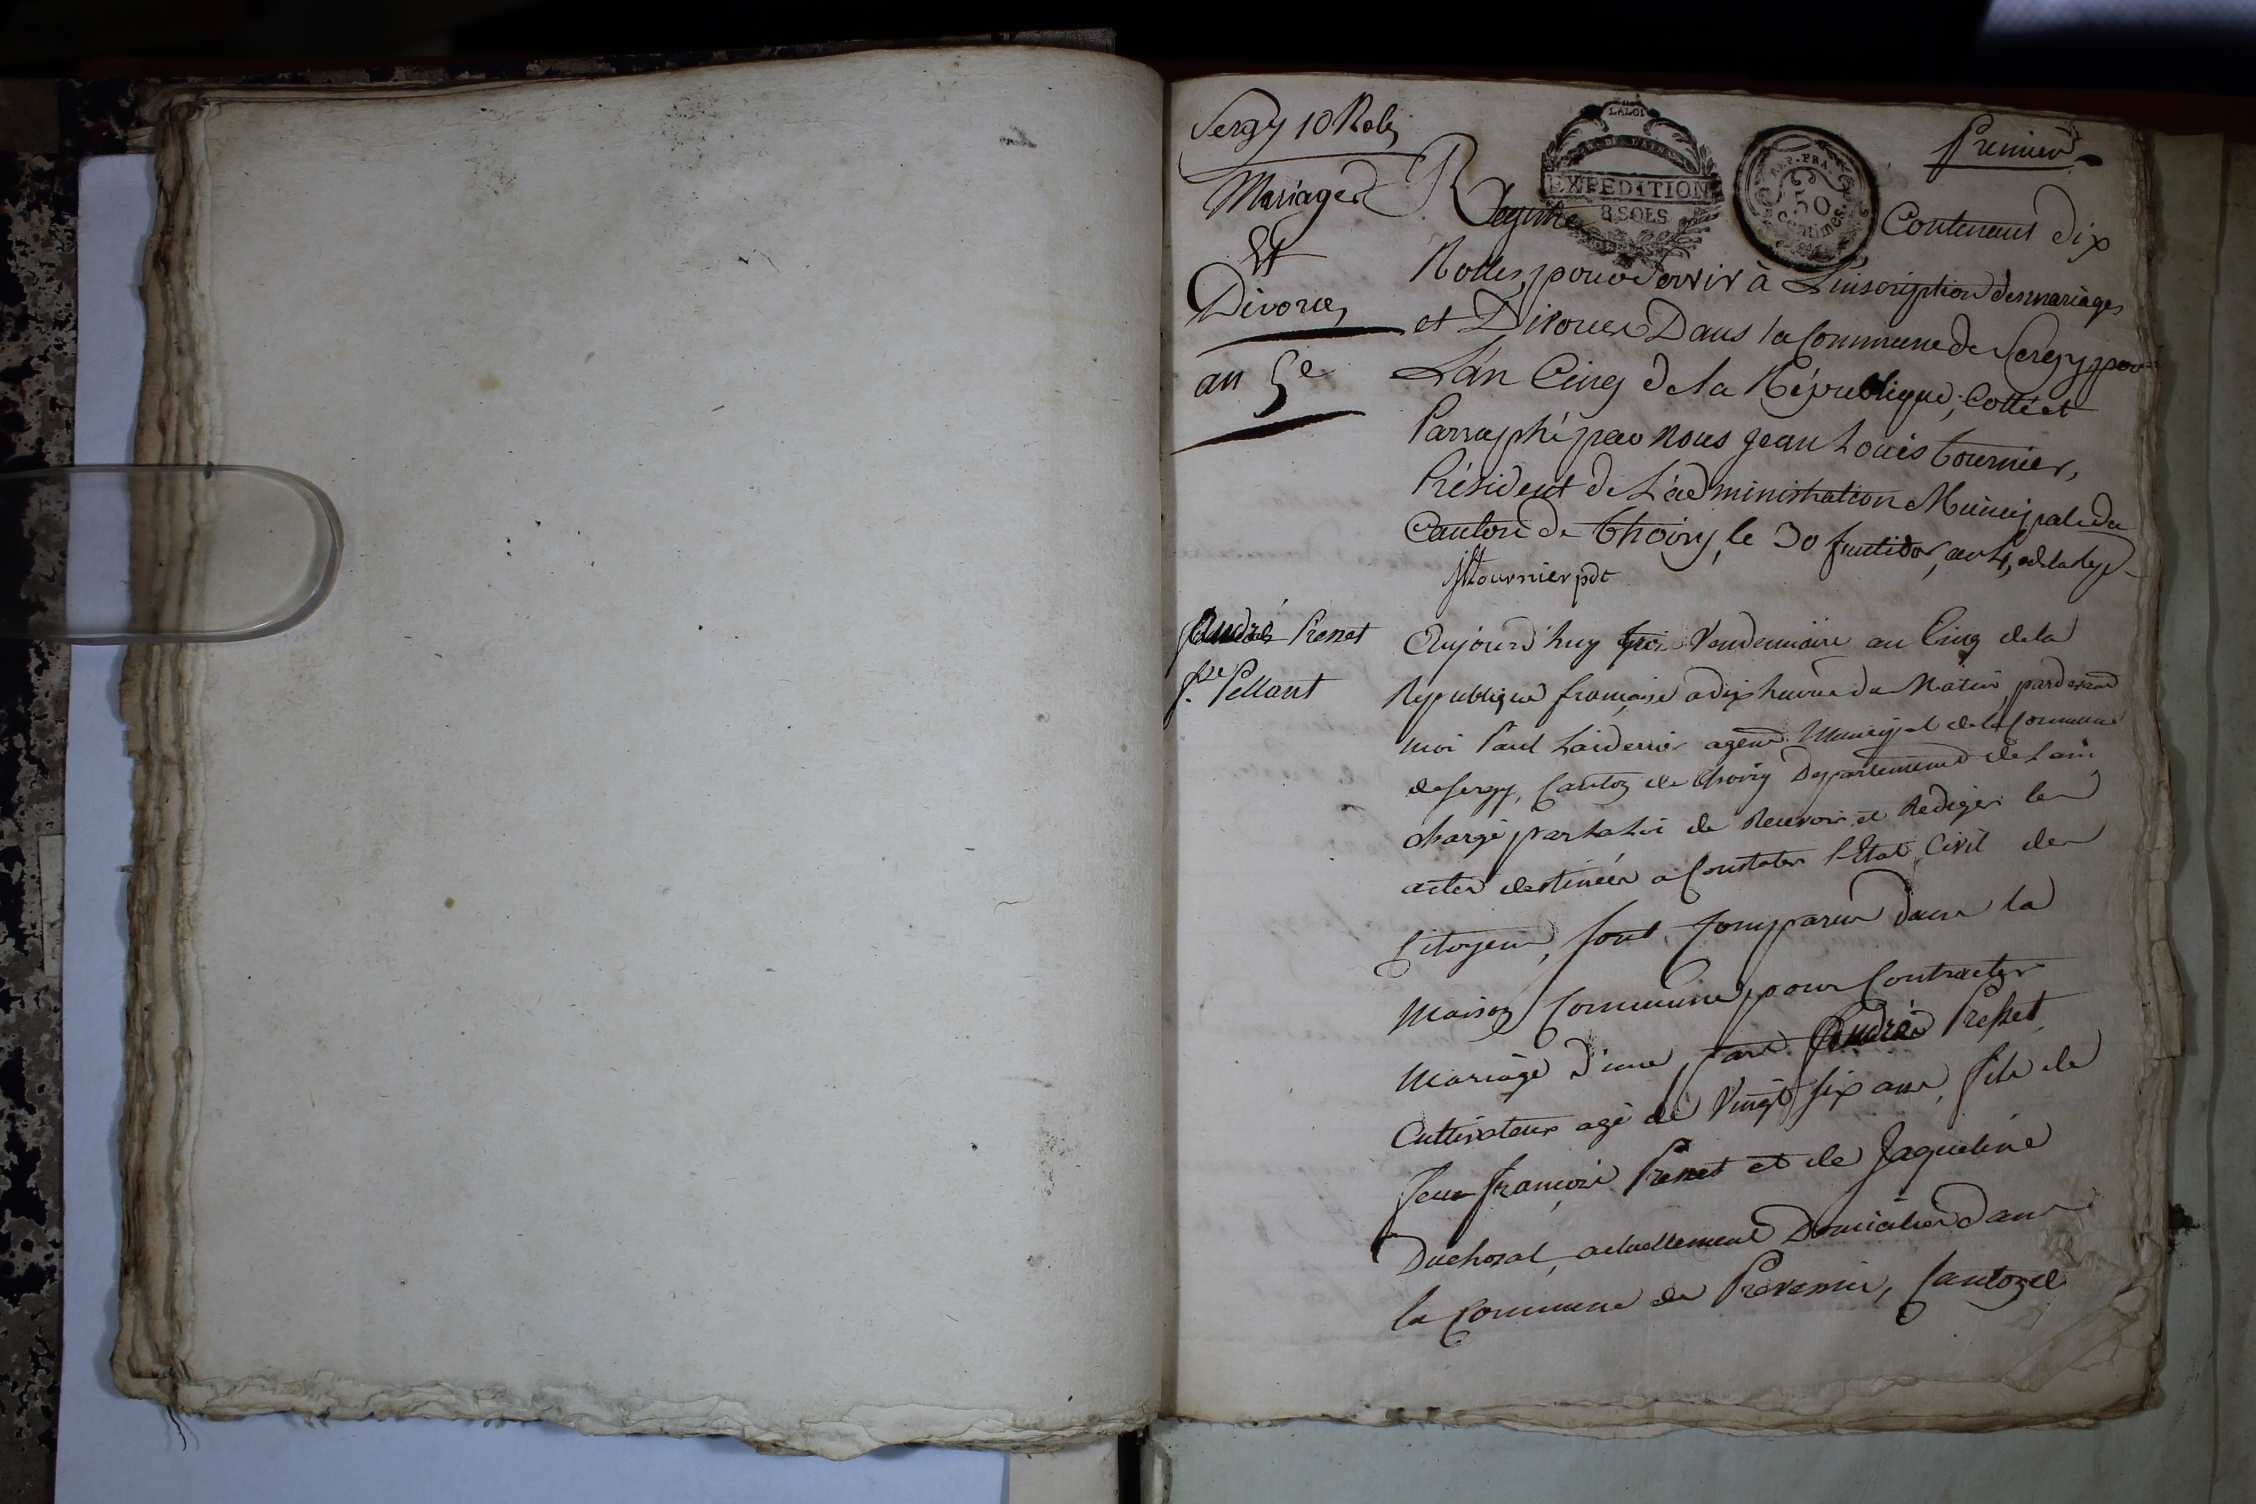 Sergy 10 Roles
Mariages
Et
Divorces
an 5e
Premier
LA LOI
EXPEDITION
8 SOLS
REP. FRA.
50
Centimes
Registre Contenant dix
Rolles, pour servir à L'inscription des mariages
et Divorces Dans la Commune de Sergy pour
L'an Cinq de la République, Cotté et
Parraphé par nous Jean Louis tournier,
Président de L'administration Municipale du
Canton de thoiry, le 30 fructidor, an 4, de la Rep
JLtournier pdt
André Presset
fse Pellant
Aujourd'huy Vendemiaire an Cinq de la
Republique française a dix heures du Matin, pardevant
moi Paul agent Municipal de la Commune
de Sergy, Canton de thoiry Departement de Lain
chargé par La Loi de Recevoir et Rediger les
actes destinées a Constater l'Etat Civil des
Citoyens, sont Comparus dans la
Maison Commune pour Contracter
Mariage d'une part André Presset
Cultivateur agé de Vingt six ans, fils de
feu françois Presset et de Jaqueline
Duchosal, actuellement Domiciliés dans
la Commune de Prevessin, Canton de